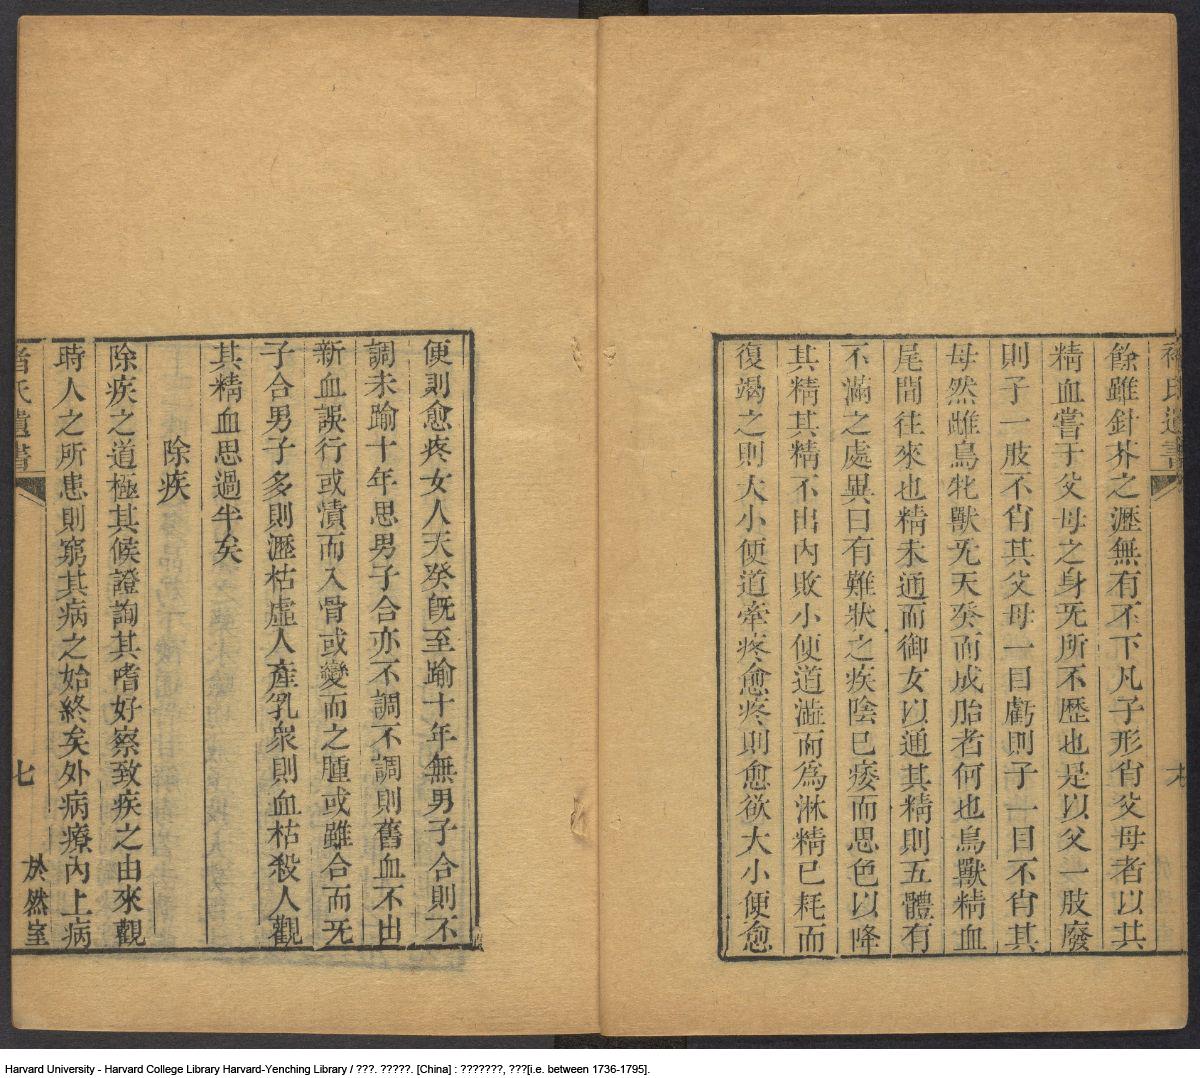 褚氏遺書
餘雖針芥之瀝無有不下凡子形肖父母者以其
精血嘗于父母之身旡所不歷也是以父一肢廢
則子一肢不肖其父母一目虧則子一目不肖其
母然雌鳥牝獸旡天癸而成胎者何也鳥獸精血
尾閭往來也精未通而御女以通其精則五體有
不滿之處異日有難狀之疾陰已痿而思色以降
其精其精不出內敗小便道澁而為淋精已耗而
復竭之則大小便道牽疼愈疼則愈欲大小便愈
便則愈疼女人天癸旣至踰十年無男子合則不
調未踰十年思男子合亦不調不調則舊血不出
新血誤行或潰而入骨或變而之腫或雖合而旡
子合男子多則瀝枯虛人產乳衆則血枯殺人觀
其精血思過半矣
除疾
除疾之道極其候證詢其嗜好察致疾之由來觀
時人之所患則窮其病之始終矣外病療內上病
褚氏遺書
七
於然室
Harvard University - Harvard College Library Harvard-Yenching Library / ???. ?????. [China] : ???????, ???[i.e. between 1736-1795].